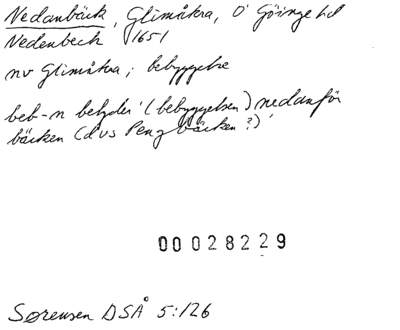 Nedanbäck, Glimåkra, Ö Göinge hd
Nedenbeck 1651
nv Glimåkra; bebyggelse
beb-n betyder '(bebyggelsen) nedanför
bäcken (dvs Pengbäcken?)'
00028229
Sørensen DSÅ 5:126